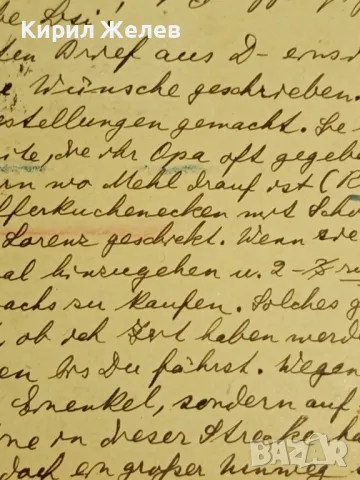 Кирил Желев
be Losi!
den Brief aus D- eins
e Wünsche geschrieben.
estellungen gemacht. Se
ite, die ihr Opa oft gegeb
ern wo Mehl drauf ist (R
fferkuchenecken mit Scho
Lorenz geschickt. Wenn sie
al hinzugehen u. 2-3
achs zu kaufen. Solches g
, ob ich Zeit haben werde
en bis Du fährst. Wegen
Emenkel, sondern auf
ine in dieser Strecke, ha
doch ein großer Umweg
bazar